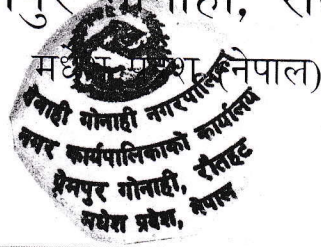 मधेश प्रदेश (नेपाल)
देवाही गोनाही नगरपालिका
नगर कार्यपालिकाको कार्यालय
प्रेमपुर गोनाही, रौतहट
मधेश प्रदेश, नेपाल